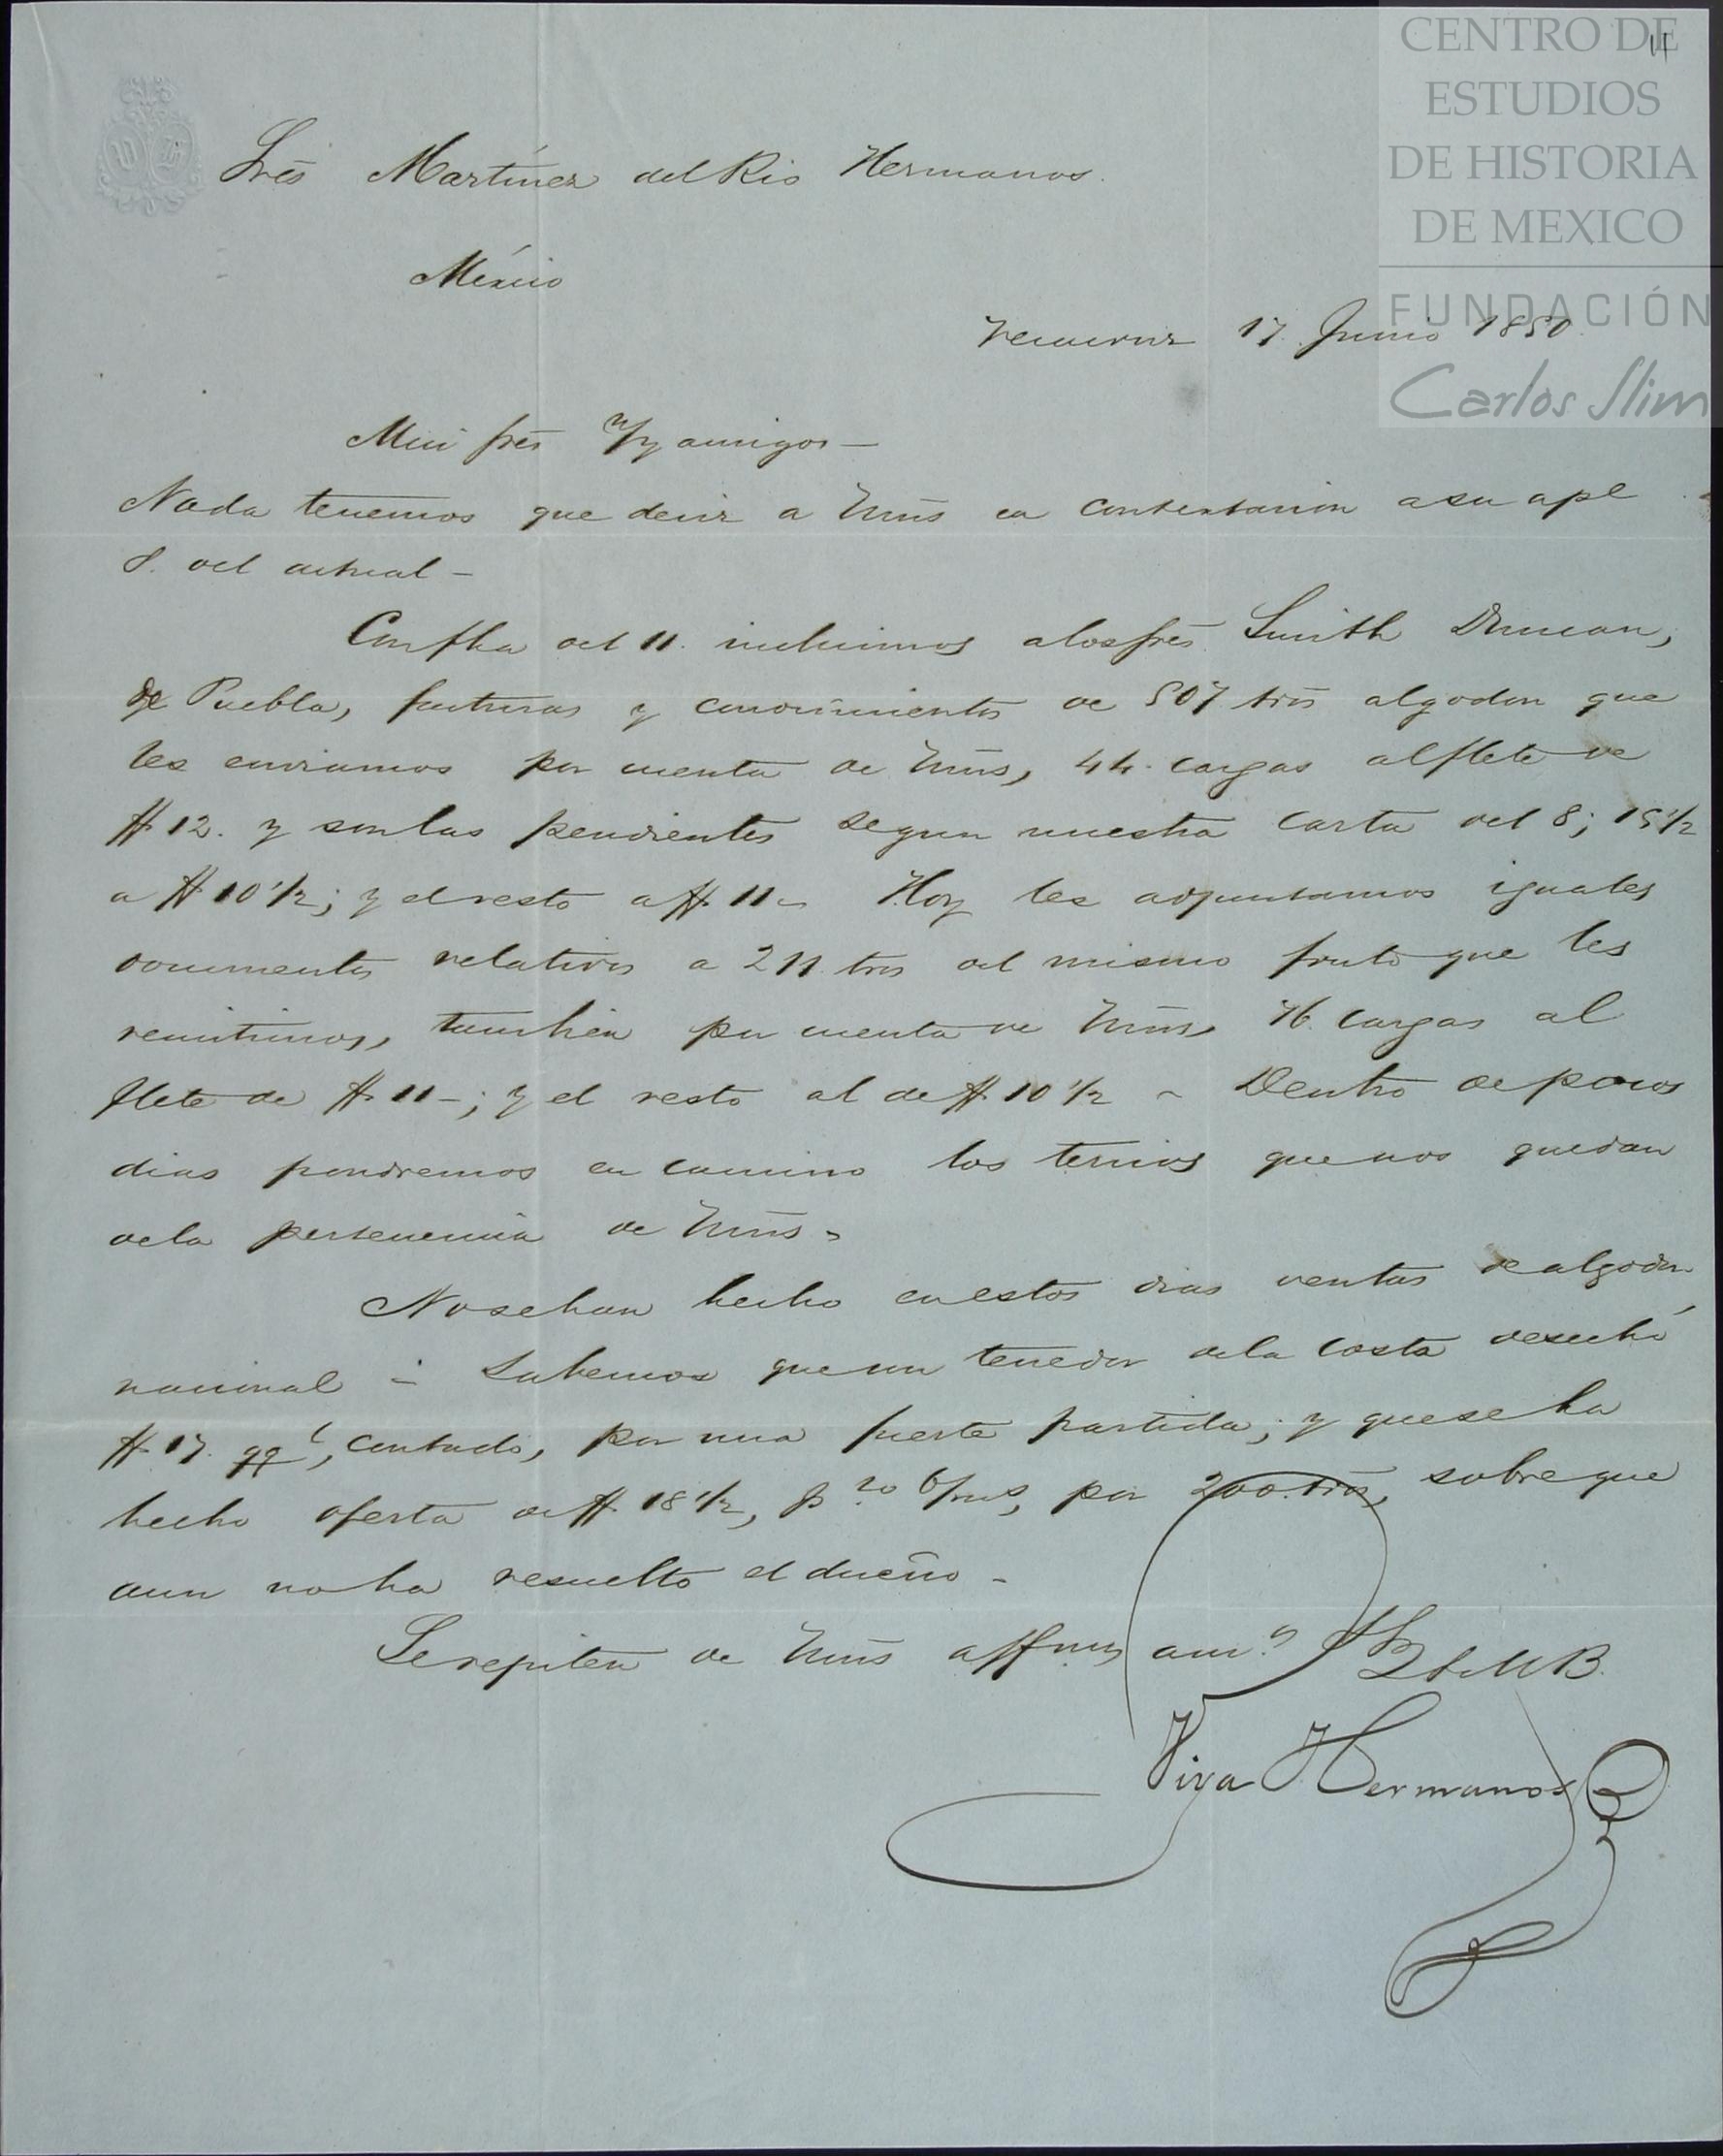 CENTRO DE
ESTUDIOS
DE HISTORIA
DE MEXICO
FUNDACIÓN
Carlos Slim
Sres Martínez del Rio Hermanos.
México
Veracruz 17. Junio 1850.
Mui sres ntros y amigos —
Nada tenemos que decir a Vms en contestacion a su ap.e
8. del actual —
Con fha del 11. incluimos a los sres Smith Duncan,
de Puebla, facturas y conocimientos de 507 trós algodon que
les enviamos por cuenta de Vms, 44. cargas al flete de
$ 12. y son las pendientes segun nuestra carta del 8; 15 1/2
a $ 10 1/2; y el resto a $ 11 – Hoy les adjuntamos iguales
documentos relativos a 211 trós del mismo fruto que les
remitimos, tambien por cuenta de Vms, 76. cargas al
flete de $ 11 –; y el resto al de $ 10 1/2 – Dentro de pocos
dias pondremos en camino los tercios que nos quedan
de la pertenencia de Vms –
No se han hecho en estos dias ventas de algodon
nacional – Sabemos que un tenedor de la costa desechó
$ 17. qql, contado, por una fuerte partida; y que se ha
hecho oferta de $ 18 1/2, por 200 trós, sobre que
aun no ha resuelto el dueño –
Se repiten de Vms affmos am.s
Q B S M B.
Viya Hermanos